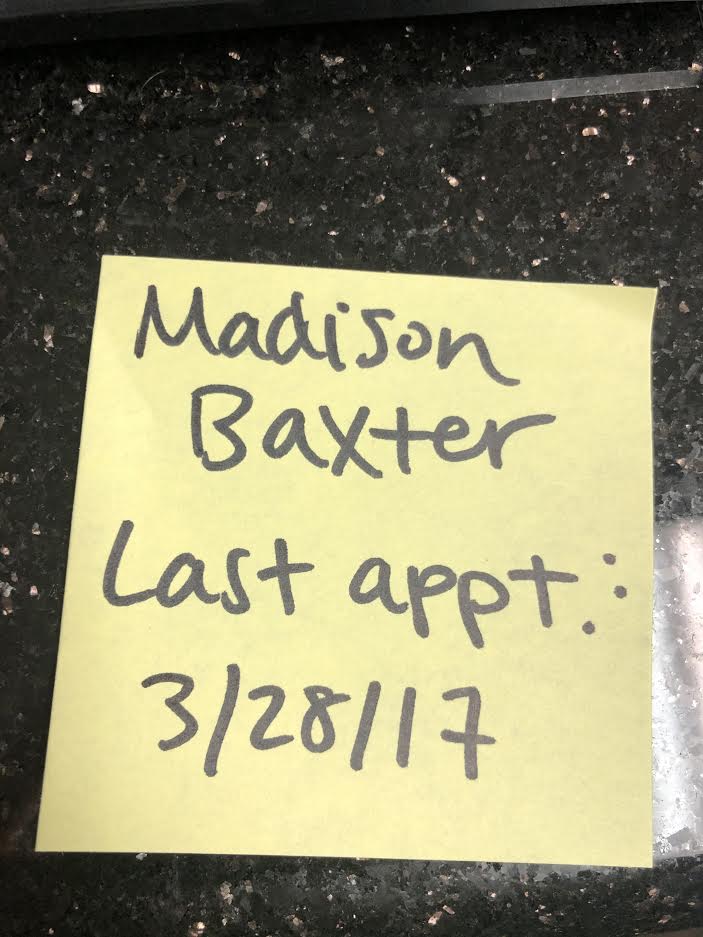 Madison
Baxter
Last appt.:
3/28/17